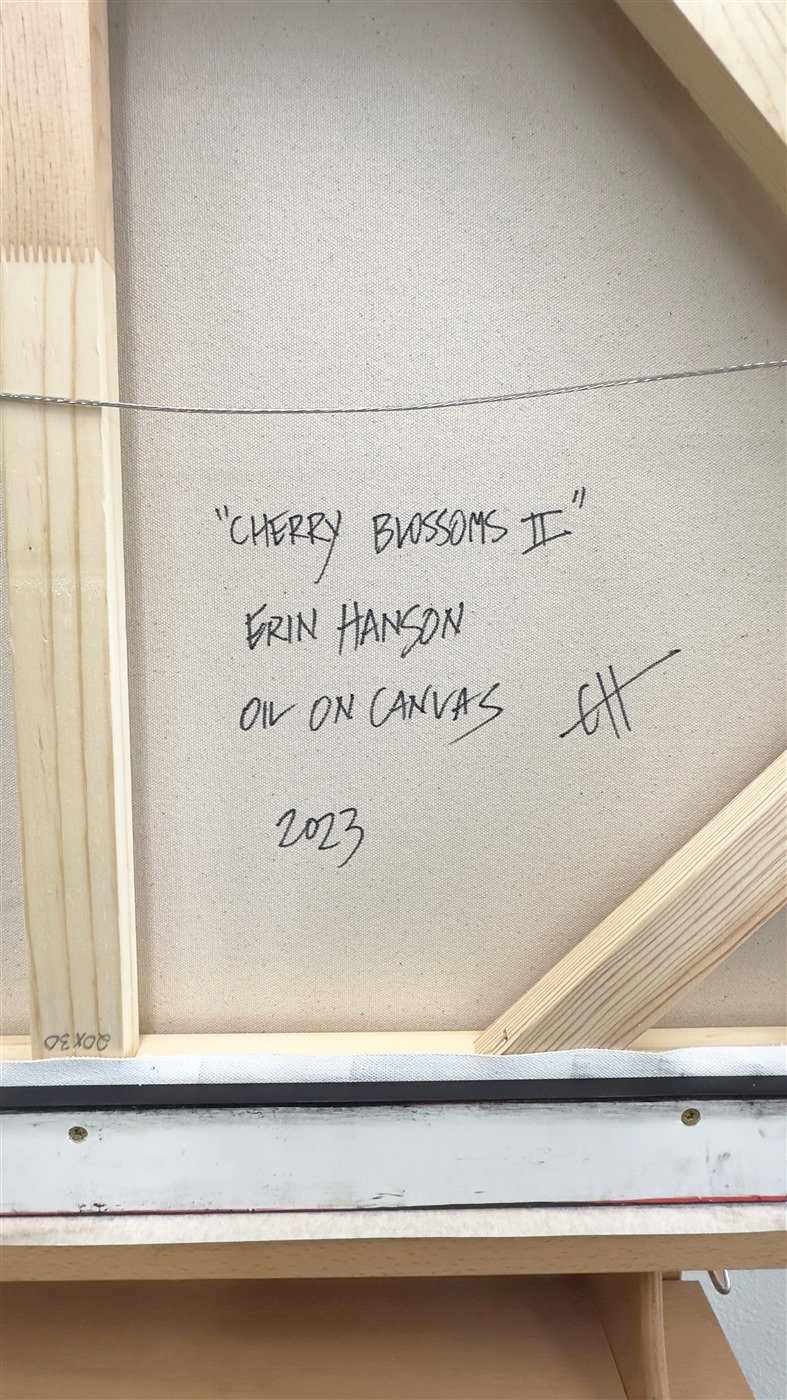 "CHERRY BLOSSOMS II"
ERIN HANSON
OIL ON CANVAS EH
2023
20X30